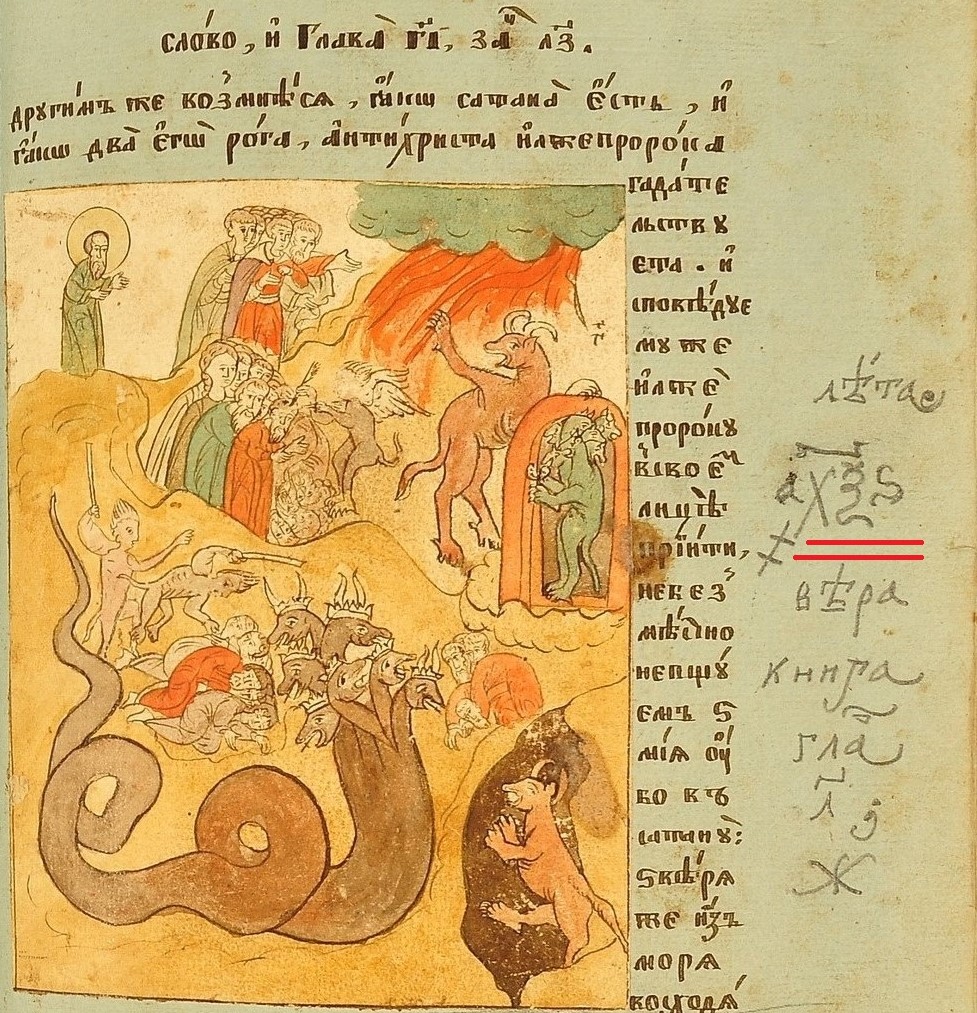 слово, и҆ Глава̀ г҃і, за҄ л҃з.
дрꙋги́мъ же возмнѣ́сѧ , ꙗ҆́кѡ сатана̀ є҆́сть , и҆
ꙗ҆́кѡ два̀ є҆гѡ̀ ро́га, а҆нти́христа и҆лжепроро́ка
гада́те
льствꙋ
ета . и҆
сповѣ́дꙋе
мꙋ же
и҆лжѐ
проро́кꙋ
лицѣ̀
прїити,
небез̾
мѣ́стно
непщꙋ́
емъ ѕ
мі́ѧ оу҆
бо въ
сатанꙋ̀:
ѕвѣ́рѧ
же и҆зъ
морѧ
восходѧ́
лѣ́та
ахѯѕ
вѣра
книга
гла
л҃
ж